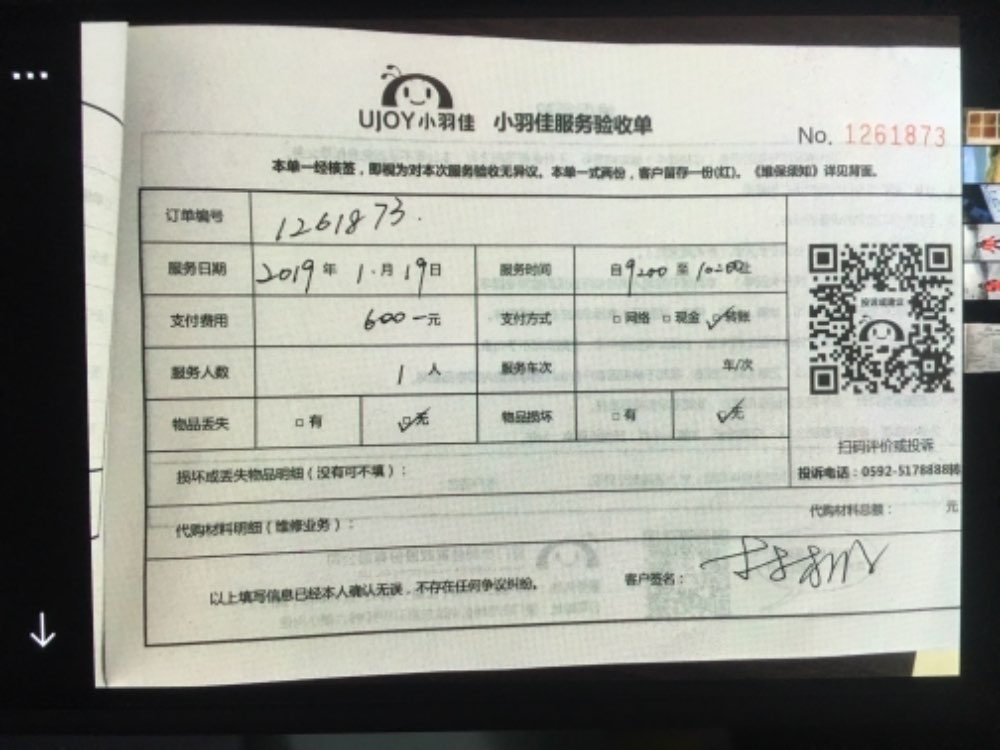 UJOY小羽佳 小羽佳服务验收单
No. 1261873
本单一经核签，即视为对本次服务验收无异议。本单一式两份，客户留存一份(红)。《维保须知》详见背面。
订单编号 1261873.
服务日期 2019年1月19日 服务时间 自9:00至10:00止
支付费用 600-元 支付方式 □网络 □现金 ☑转账
服务人数 1人 服务车次 车/次
物品丢失 □有 ☑无 物品损坏 □有 ☑无
投诉或建议
扫码评价或投诉
投诉电话：0592-5178888
损坏或丢失物品明细（没有可不填）：
代购材料明细（维修业务）： 代购材料总额： 元
以上填写信息已经本人确认无误，不存在任何争议纠纷。 客户签名：